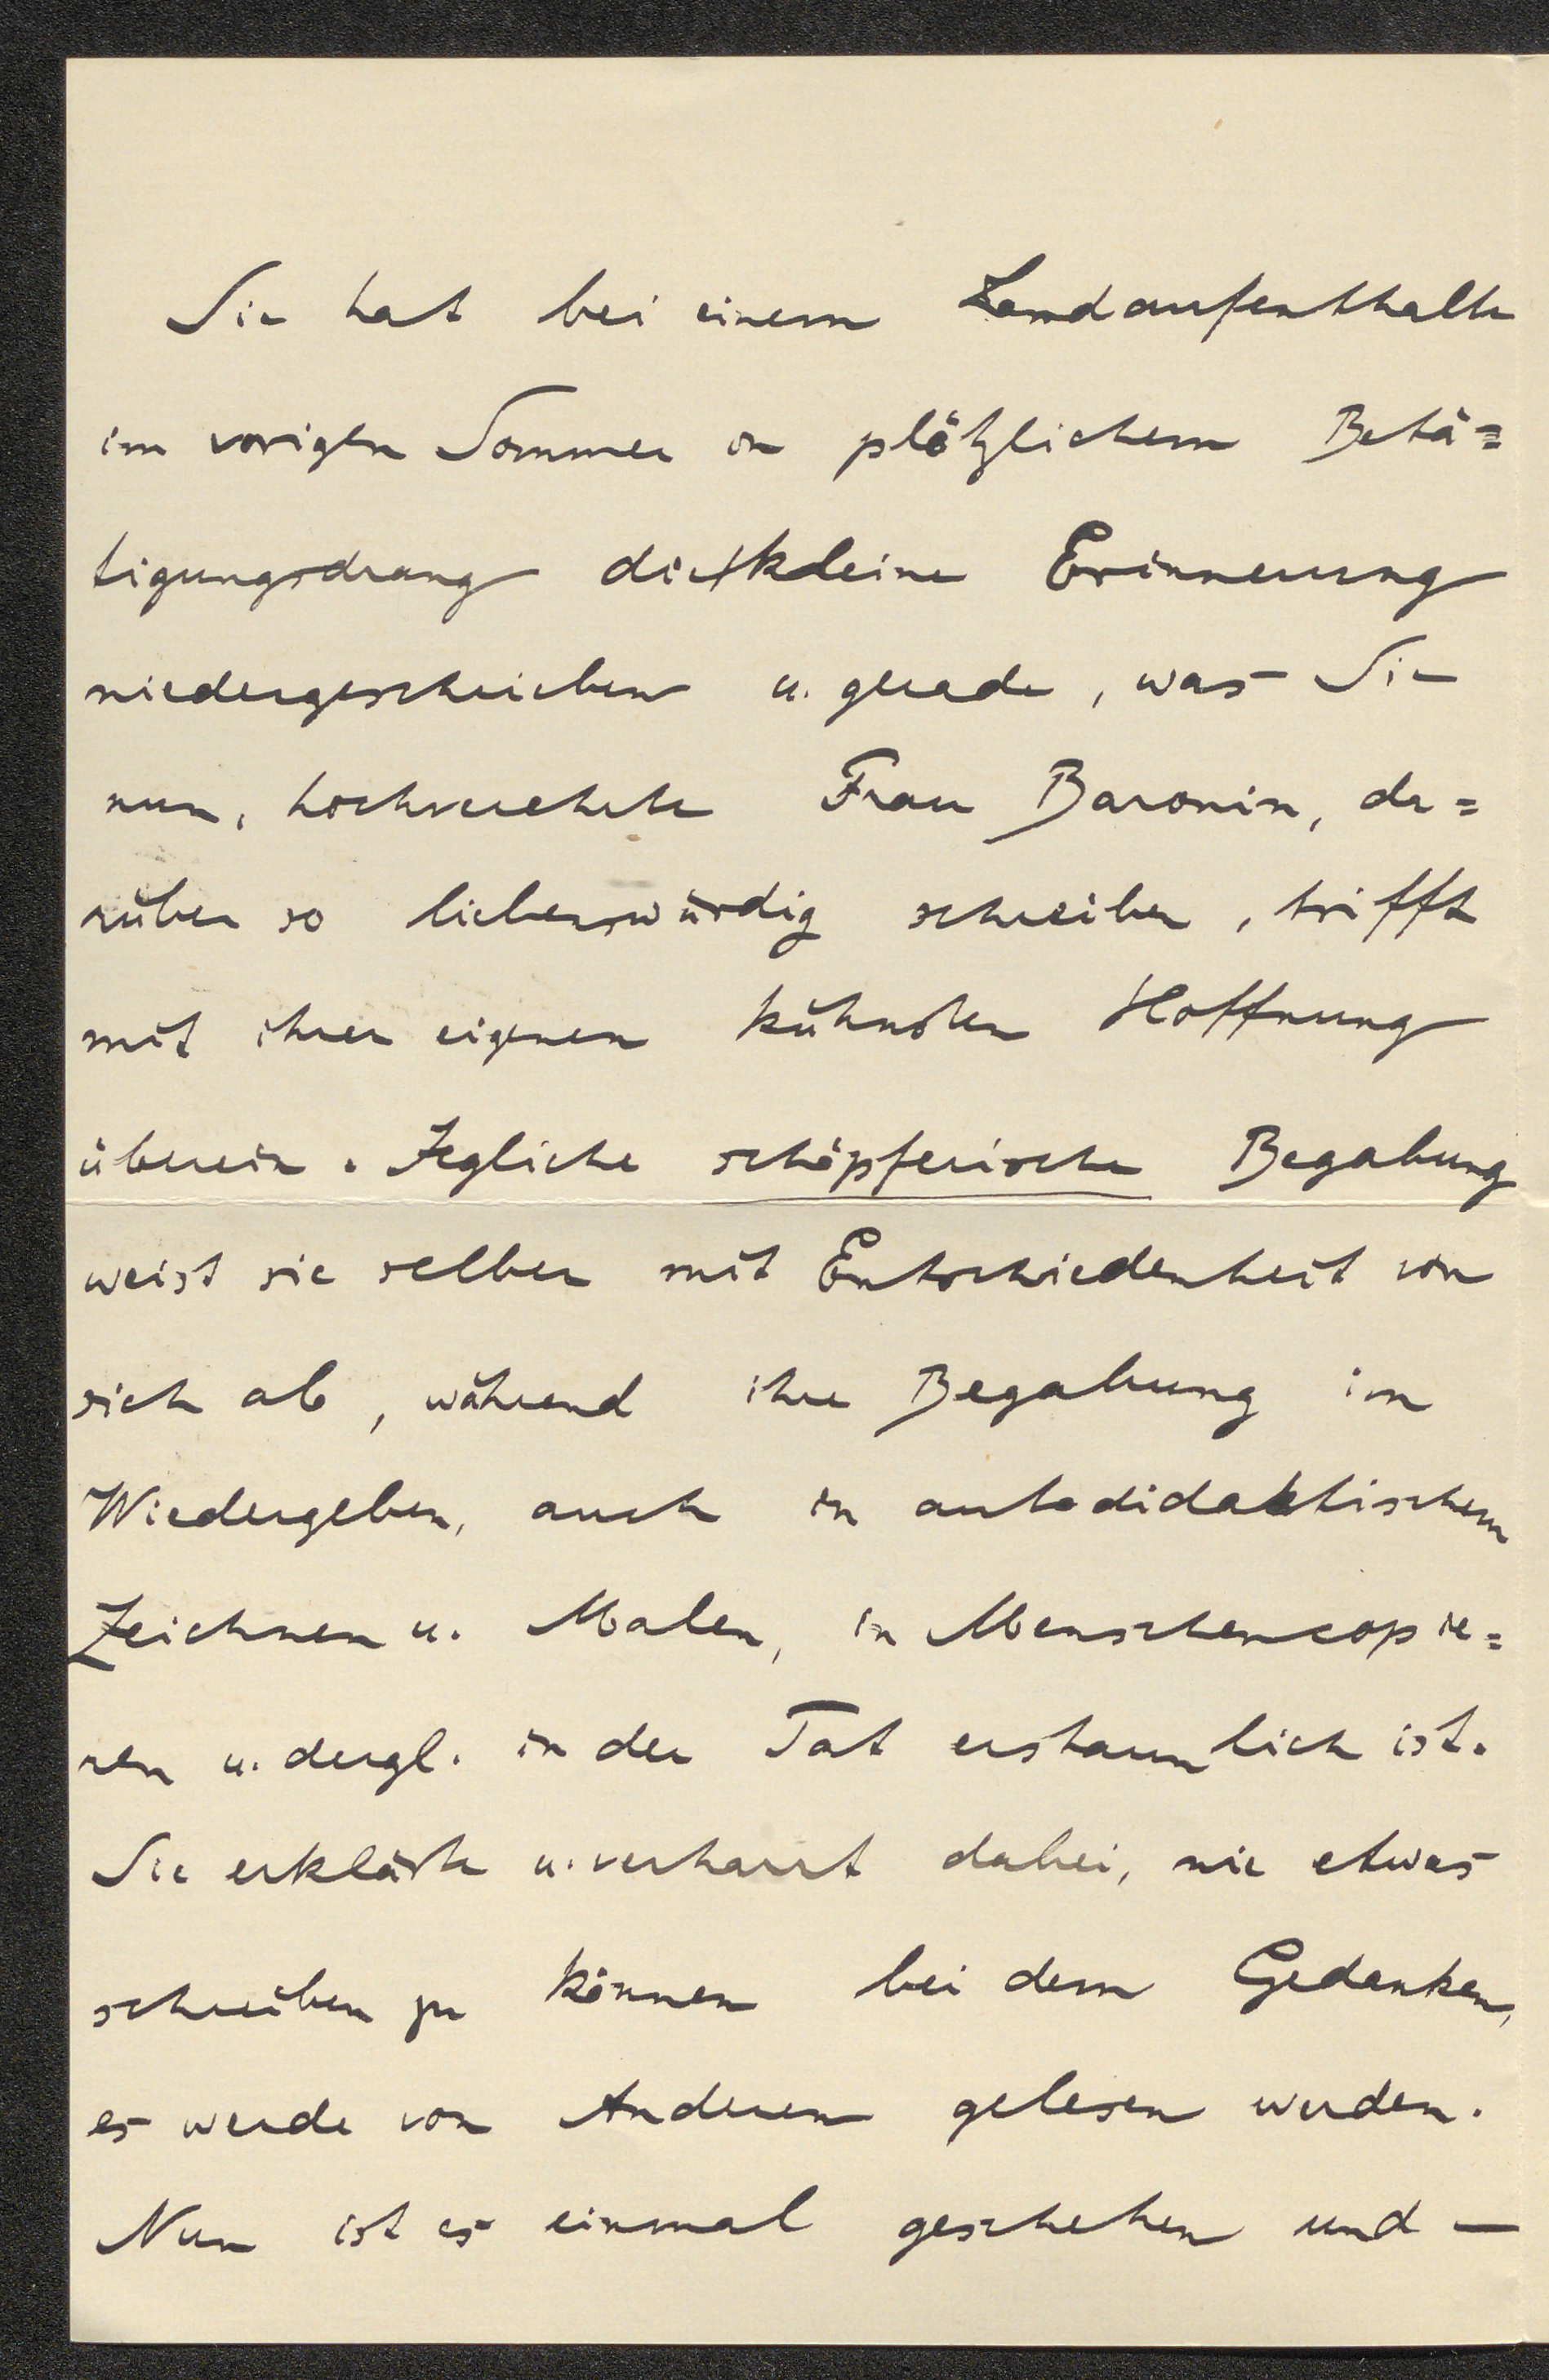 Sie hat bei einem Landaufenthalte
im vorigen Sommer in plötzlichem Betä=
tigungsdrang die kleine Erinnerung
niedergeschrieben u. gerade, was Sie
nun, hochverehrte Frau Baronin, da=
rüber so liebenswürdig schreiben, trifft
mit ihrer eigenen kühnsten Hoffnung
überein. Jegliche schöpferische Begabung
weist sie selber mit Entschiedenheit von
sich ab, während ihre Begabung im
Wiedergeben, auch in autodidaktischem
Zeichnen u. Malen, in Menschencopie=
ren u. dergl. in der Tat erstaunlich ist.
Sie erklärte u. verharrt dabei, nie etwas
schreiben zu können bei dem Gedanken,
es werde von Anderen gelesen werden.
Nun ist es einmal geschehen und —